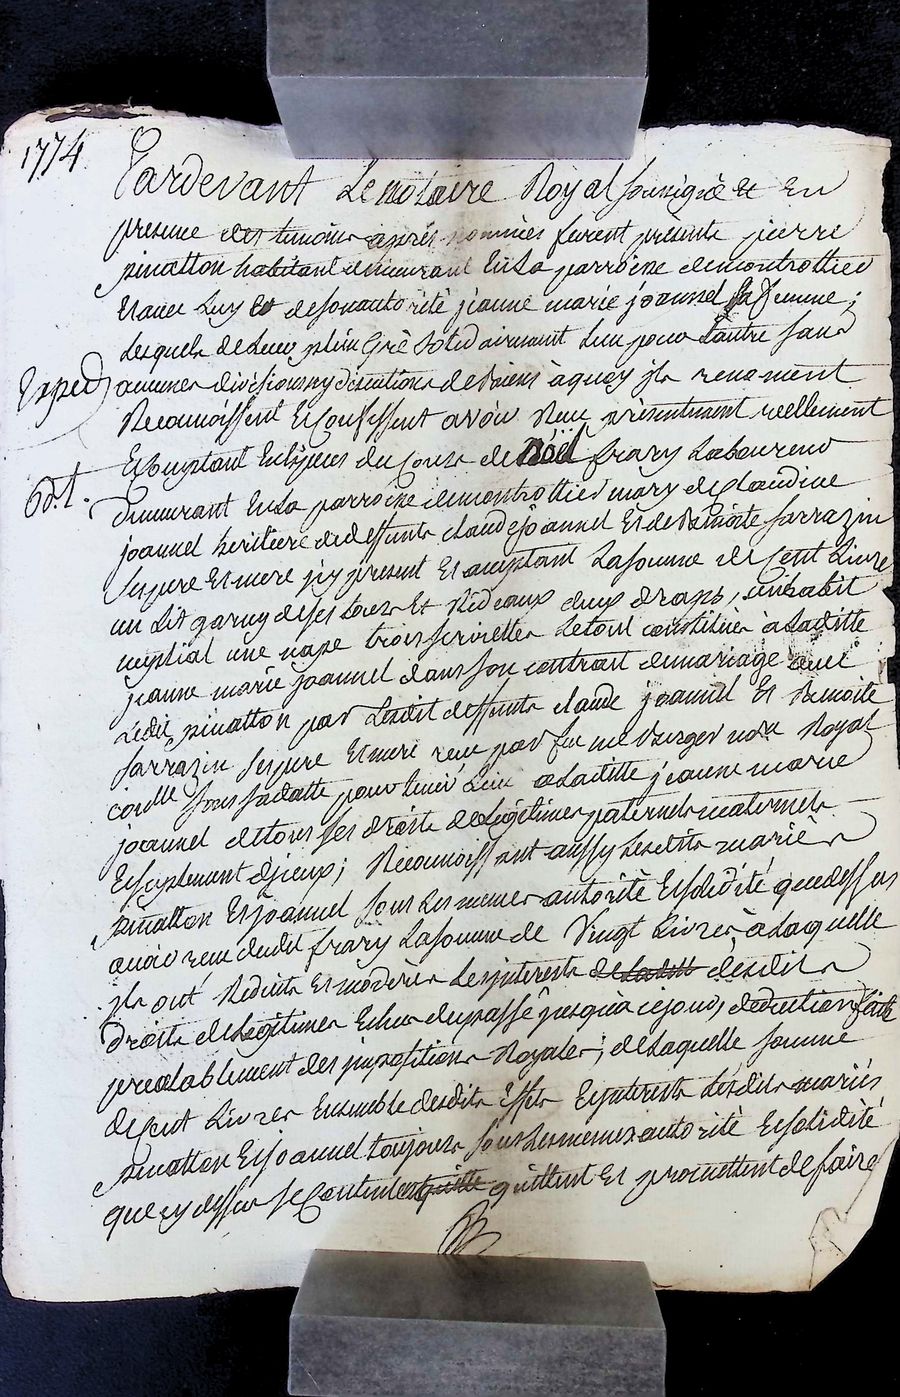 1774
Pardevant Le notaire Royal soussigné et En
presence des temoins aprés nommées furent presents pierre
pinatton habitant demeurant En La parroisse demontrottier
Et avec Luy et desonautorité jeanne marie joannel sa femme ;
Lesquels de Leur plein Gré solidairement L'un pour L'autre sans
Exped aucunes divisions ny discutions de Biens àquoy jls renoncent
Reconnoissent Et Confessent avoir Reçu présentement reellement
Et Comptant En Espèces du Cours de Nöel frary Laboureur
d.t. Demeurant En La parroisse demontrottier mary de Claudine
joannel heritiere de deffunts claude joannel Et de Benoite sarrazin
ses pere Et mere jcy present Et acceptant La somme de Cent Livre
un Lit garny de ses tours Et Rideaux deux draps, un habit
nuptial une nape trois serviettes Le tout constitués à Laditte
jeanne marie joannel dans son contrant de mariage avec
Ledit pinatton par Lesdit deffunts claude joannel Et Benoite
sarrazin ses pere Et mere reçu par feu me Berger nore Royal
sous sa datte pour tenir Lieu a Laditte jeanne marie
joannel de tous ses droits de Légitimes paternels maternels
Et suplement djceux ; Reconnoissant aussy Lesdits mariés
pinatton Et joannel sous Les memes autorité Et solidité que dessus
avoir reçu dudit frary La somme de Vingt Livres à Laquelle
jls ont Réduits Et moderés Les jnterests de Laditt desdits
droits de Légitimes Echus du passé jusqua cejour, deduction faite
prealablement des jmpositions Royales ; de Laquelle somme
de Cent Livres Ensemble desdits Effets Et jnterests Lesdits mariés
pinatton Et joannel toujours sous Les memes autorité Et solidité
que cy dessus se Contentent quitte quittent Et promettent de faire